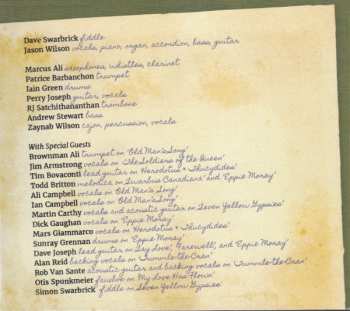 Dave Swarbrick fiddle
Jason Wilson vocals, piano, organ, accordion, bass, guitar
Marcus Ali saxophones, whistles, clarinet
Patrice Barbanchon trumpet
Iain Green drums
Perry Joseph guitar, vocals
RJ Satchithananthan trombone
Andrew Stewart bass
Zaynab Wilson cajon, percussion, vocals
With Special Guests
Brownman Ali trumpet on 'Old Man's Song'
Jim Armstrong vocals on 'The Soldiers of the Queen'
Tim Bovaconti lead guitar on 'Herodotus + Thucydides'
Todd Britton melodica on 'Swarbus Canadians' and 'Eppie Moray'
Ali Campbell vocals on 'Old Man's Song'
Ian Campbell vocals on 'Old Man's Song'
Martin Carthy vocals and acoustic guitar on 'Seven Yellow Gypsies'
Dick Gaughan vocals on 'Eppie Moray'
Mars Giammarco vocals on 'Herodotus + Thucydides'
Sunray Grennan drums on 'Eppie Moray'
Dave Joseph lead guitar on 'Jay Love', 'Farewell', and 'Eppie Moray'
Alan Reid backing vocals on
Rob Van Sante acoustic guitar and backing vocals on
Otis Spunkmeier on 'My Love Has Flown'
Simon Swarbrick fiddle on 'Seven Yellow Gypsies'